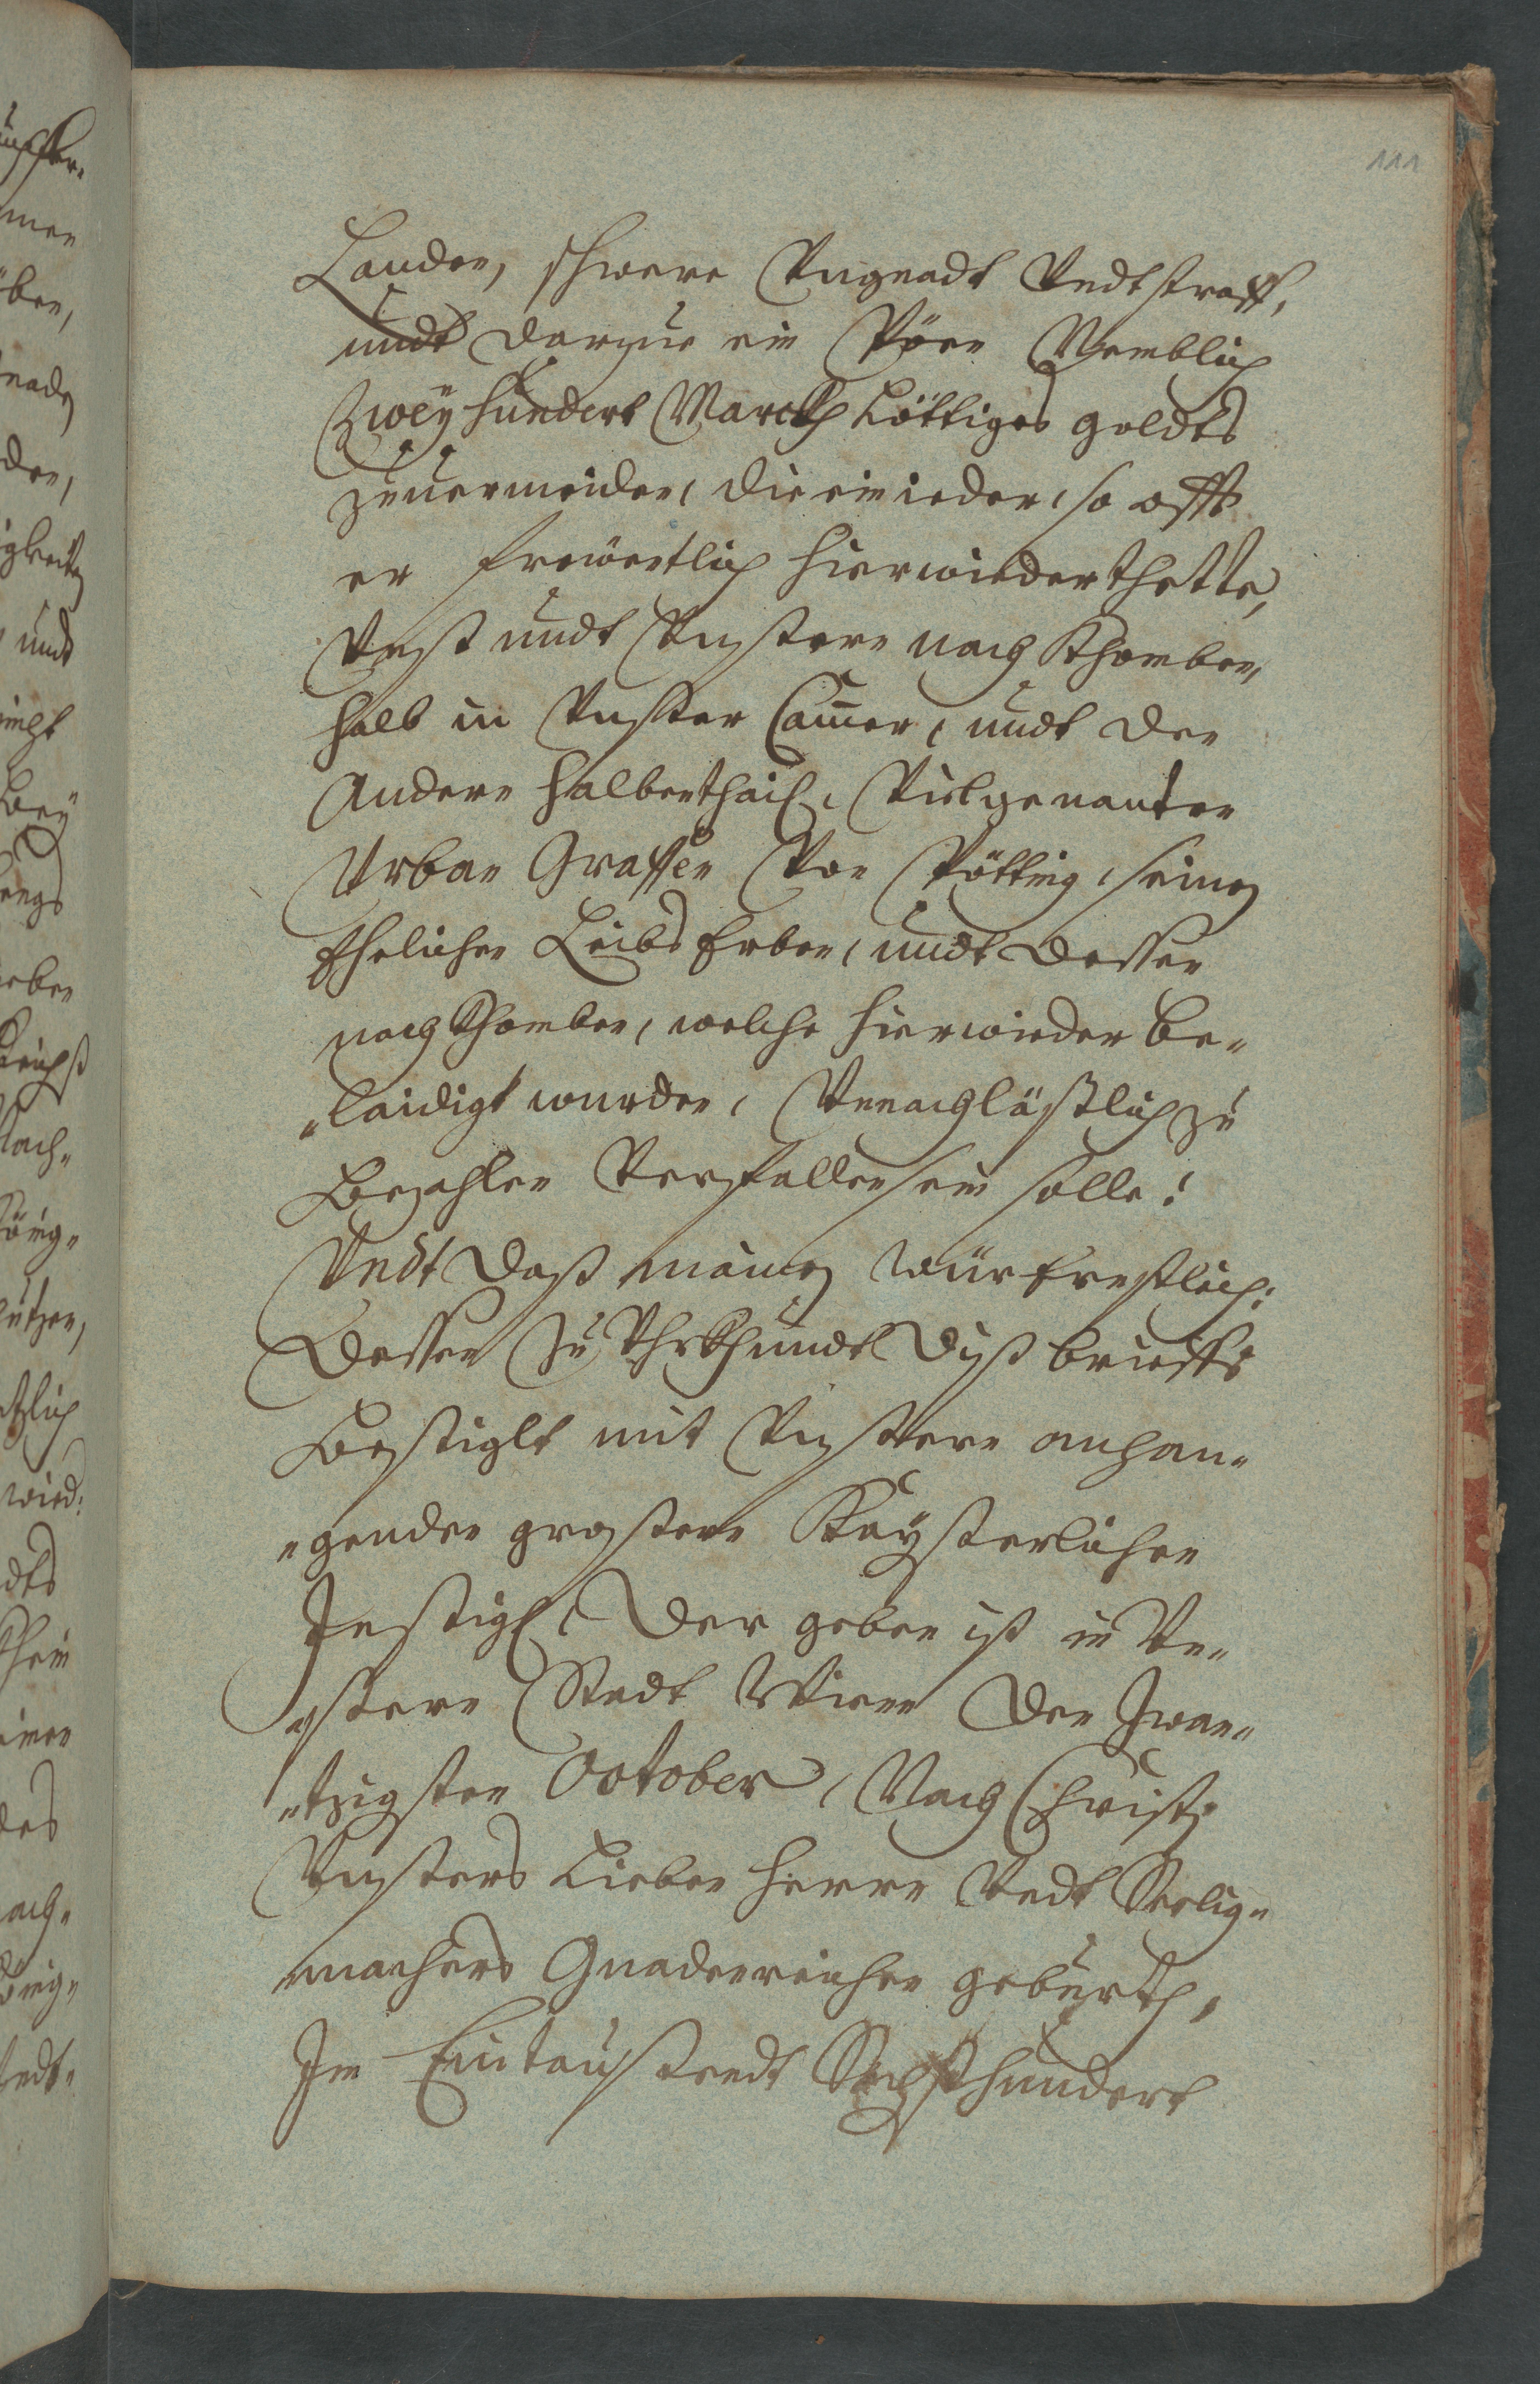 111
Landen, schwere Vngnadt Vndt straff,
undt darzue ein Pöen Nemblich
Zweyhundert Marckh Löttiges goldts
zuuermeiden, die ein ieder, so offt
er freuentlich hierwieder thette,
Vnß undt Vnßern nachkhomben,
halb in Vnßer Camer, undt den
Andern halbenthail, Vielgenanten
Urban Graffen Von Pötting, seinen
Ehelichen Leibs Erben, undt dessen
nachkhomben, welche hierwieder be-
"laidigt wurden, Vnnachläßlich zu
Bezahlen Verfallen sein solle:
Vndt daß mainen wür Ernstlich:
Dessen Zu Uhrkhundt diß brieffs
Besiglt mit Vnßern anhan-
"genden grossern Kayßerlichen
Insigl, Der geben ist in Un-
"ßern Stadt Wienn den Zwan-
"tzigsten October, Nach Christi
Vnßers Lieben Herrn Vndt Seelig-
machers Gnadenreichen geburth,
Im Eintaußendt Sechßhundert